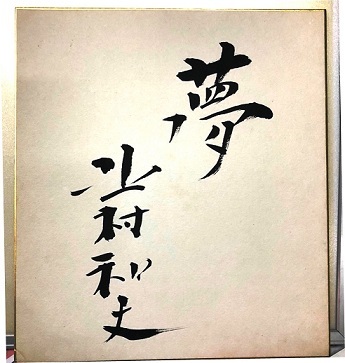 夢
北村和夫